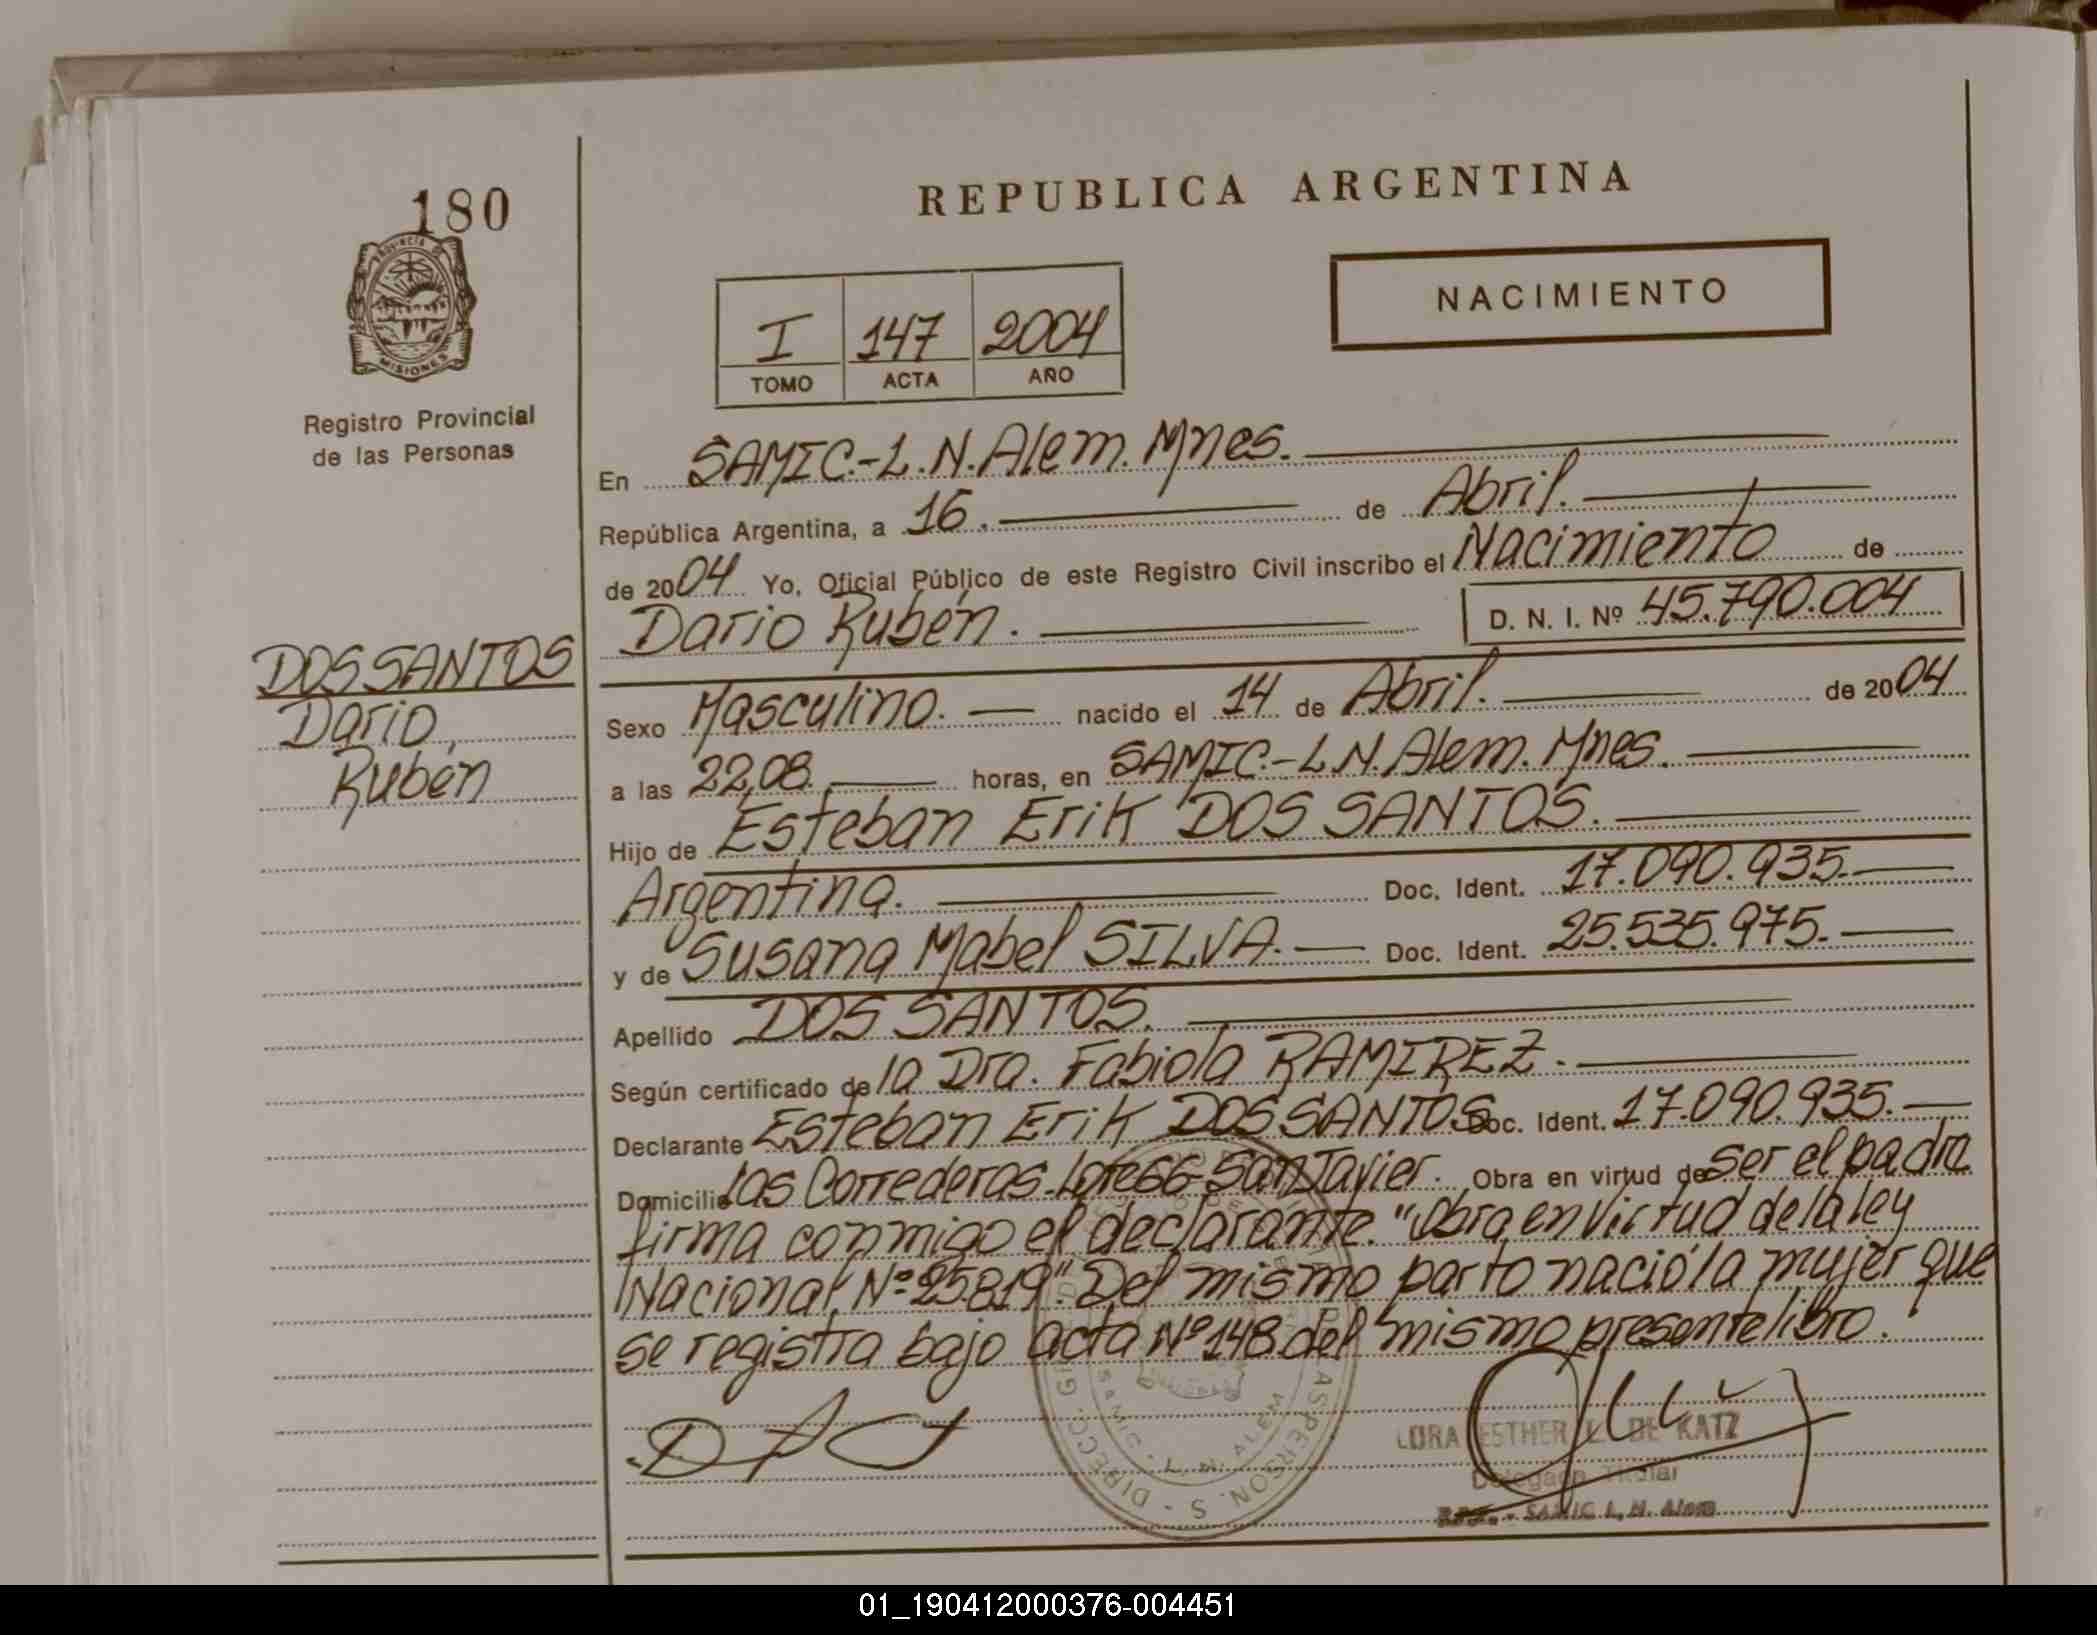 180
PROVINCIA DE
MISIONES
Registro Provincial
de las Personas
DOS SANTOS
Dario,
Rubén
REPUBLICA ARGENTINA
NACIMIENTO
I 147 2004
TOMO ACTA AÑO
En SAMIC.-L.N.Alem.Mnes.
República Argentina, a 16. de Abril.
de 2004 Yo, Oficial Público de este Registro Civil inscribo el Nacimiento de
Dario Rubén. D. N. I. Nº 45.790.004
Sexo Masculino. nacido el 14 de Abril. de 2004
a las 22,08. horas, en SAMIC.-L.N.Alem.Mnes.
Hijo de Esteban Erik DOS SANTOS.
Argentina. Doc. Ident. 17.090.935.
y de Susana Mabel SILVA. Doc. Ident. 25.535.975.
Apellido DOS SANTOS.
Según certificado de la Dra. Fabiola RAMIREZ.
Declarante Esteban Erik DOS SANTOS Doc. Ident. 17.090.935.
Domicilio Las Correderas-Lote66-San Javier. Obra en virtud de ser el padre
firma conmigo el declarante. "Obra en virtud de la ley
Nacional Nº 25.819". Del mismo parto nació la mujer que
se registra bajo acta Nº 148 del mismo presente libro.
ESTHER L. DE KATZ
Titular
SAMIC L. N. Alem
01_190412000376-004451